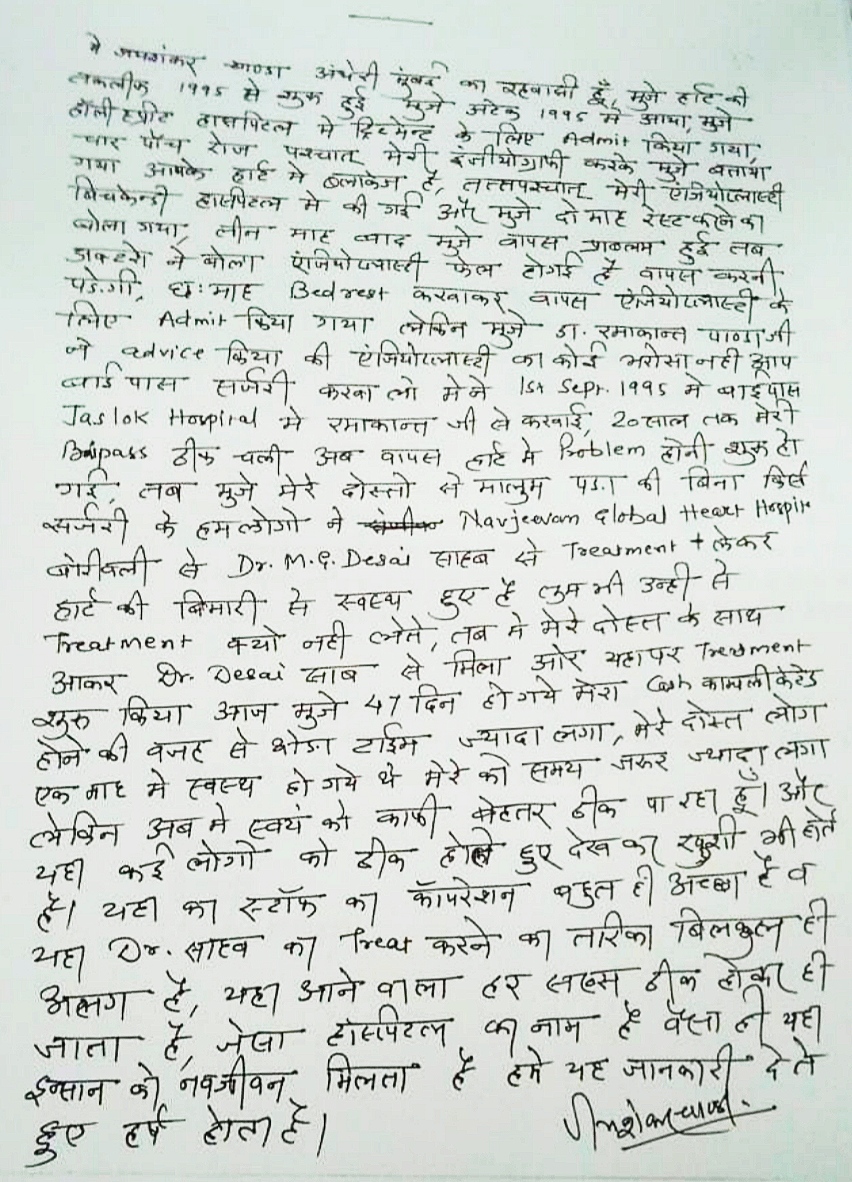 मे जयशंकर चाण्डा अंधेरी मुंबई का रहवासी हूँ, मुजे हार्ट की
तकलीफ 1995 से शुरू हुई मुजे अटेक 1995 मे आया, मुजे
होली स्प्रीट हास्पिटल मे ट्रिटमेन्ट के लिए Admit किया गया,
चार पाँच रोज पश्चात् मेरी इंजीयोग्राफी करके मुजे बताया
गया आपके हार्ट मे ब्लाकेज है, तत्तपश्चात् मेरी एंजियोप्लास्टी
ब्रिचकेन्डी हास्पिटल मे की गई और मुजे दो माह रेस्ट करने का
बोला गया, तीन माह बाद मुजे वापस प्राब्लम हुई तब
डाक्टरो ने बोला एंजियोप्लास्टी फेल होगई है वापस करनी
पडे.गी, छः माह Bedrest करवाकर वापस एंजियोप्लास्टी के
लिए Admit किया गया लेकिन मुजे डा. रमाकान्त पाण्डाजी
ने advice किया की एंजियोप्लास्टी का कोई भरोसा नही आप
बाईपास सर्जरी करवा लो मेने 1st Sept. 1995 मे बाइपास
Jaslok Hospital मे रमाकान्त जी से करवाई, 20 साल तक मेरी
Baipass ठीक चली अब वापस हार्ट मे Problem होनी शुरू हो
गई, तब मुजे मेरे दोस्तो से मालुम पडा की बिना किसी
सर्जरी के हमलोगो ने Navjeevan Global Heart Hospital
बोरीवली से Dr. M.G. Desai साहब से Treatment लेकर
हार्ट की बिमारी से स्वस्थ हुए है तुम भी उन्ही से
Treatment क्यो नही लेते, तब मे मेरे दोस्त के साथ
आकर Dr. Desai साब से मिला ओर यहापर Treatment
शुरु किया आज मुजे 47 दिन हो गये मेरा Cash काम्पलीकेटेड
होने की वजह से थोडा टाईम ज्यादा लगा, मेरे दोस्त लोग
एक माह मे स्वस्थ हो गये थे मेरे को समय जरुर ज्यादा लगा
लेकिन अब मे स्वयं को काफी बेहतर ठीक पा रहा हूँ। और
यहा कई लोगो को ठीक होते हुए देख कर खुशी भी होती
है। यहा का स्टॉफ का कॉपरेशन बहुत ही अच्छा है व
यहा Dr. साहब का Treat करने का तारिका बिलकुल ही
अलग है, यहा आने वाला हर सख्स ठीक होकर ही
जाता है, जेसा हॉस्पिटल का नाम है वैसा ही यहा
इन्सान को नवजीवन मिलता है हमे यह जानकारी देते
हुए हर्ष होता है।